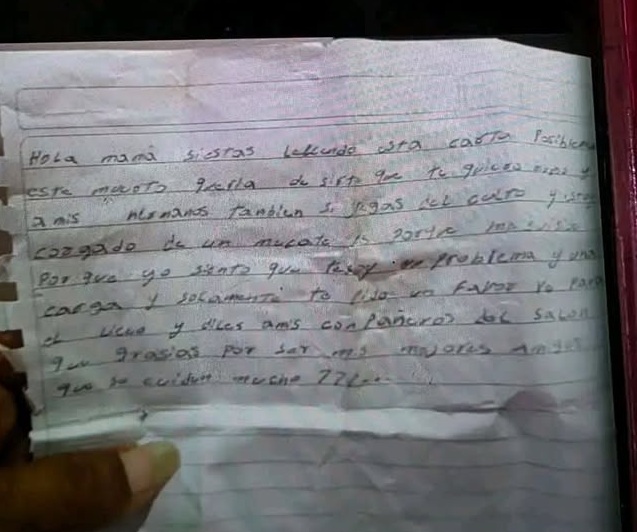 Hola mamá siestas lellendo esta carta Posiblem
este muerto queria de sirte que te quiero mas y
a mis hermanos tanbien si llegas del culto y estoy
corgado de un mecate is porque
Por que yo siento que un problema y una
carga y solamente te pido un favor ve para
el liceo y diles amis conpañeros del salon
que grasias por ser mis mejores amigos
que se cuiden mucho